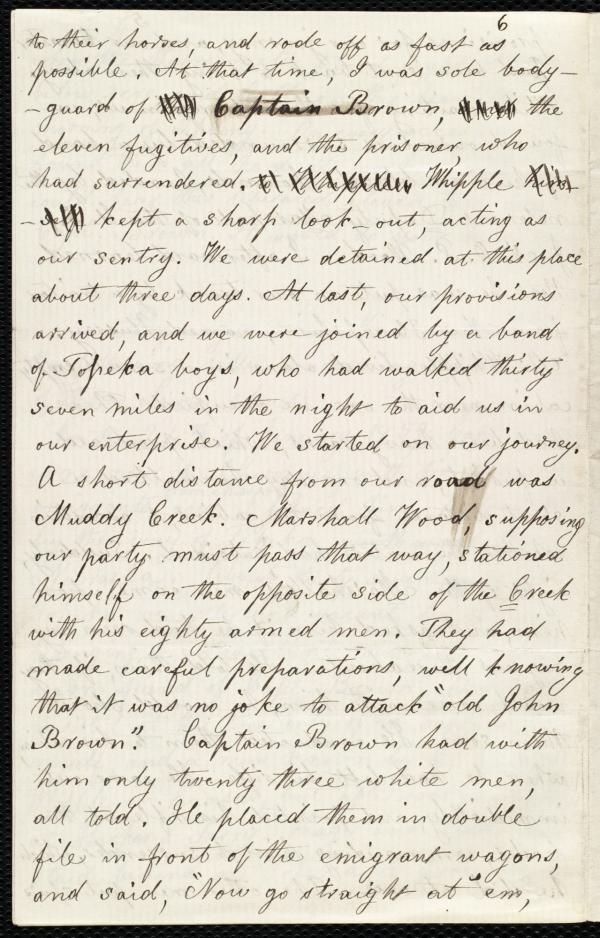 6
to their horses, and rode off as fast as
possible. At that time, I was sole body-
-guard of Captain Brown, the
eleven fugitives, and the prisoner who
had surrendered. Whipple
kept a sharp look-out, acting as
our sentry. We were detained at this place
about three days. At last, our provisions
arrived, and we were joined by a band
of Topeka boys, who had walked thirty
seven miles in the night to aid us in
our enterprise. We started on our journey.
A short distance from our road was
Muddy Creek. Marshall Wood, supposing
our party must pass that way, stationed
himself on the opposite side of the Creek
with his eighty armed men. They had
made careful preparations, well knowing
that it was no joke to attack "old John
Brown". Captain Brown had with
him only twenty three white men,
all told. He placed them in double
file in front of the emigrant wagons,
and said, "Now go straight at 'em,